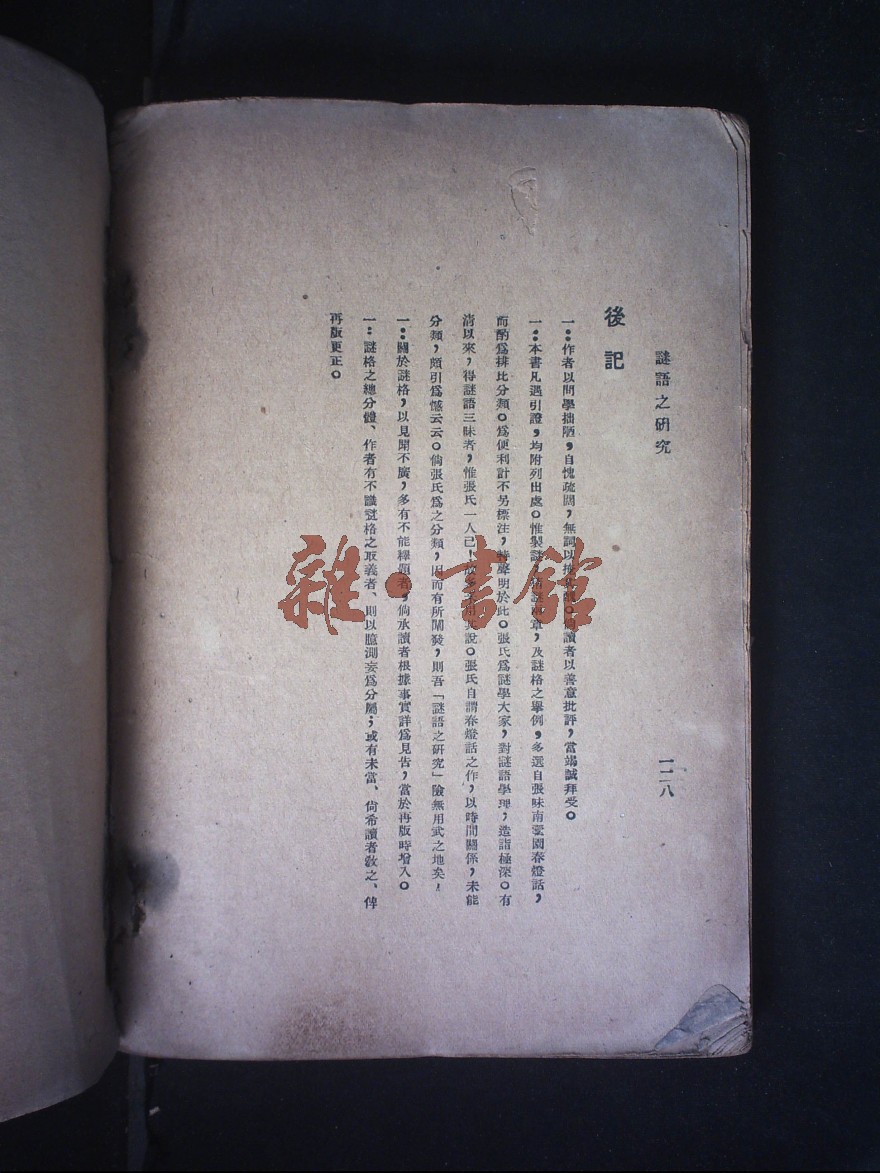 謎語之研究
一二八
後記
一：作者以問學拙陋，自愧疏闊，無詞以掩 讀者以善意批評，當竭誠拜受。
一：本書凡遇引證，均附列出處。惟製謎 章，及謎格之舉例，多選自張味南 園春燈話，
而酌爲排比分類。爲便利計不另標注，特聲明於此。張氏爲謎學大家，對謎語學理，造詣極深。有
淸以來，得謎語三昧者，惟張氏一人已！故多 其說。張氏自謂春燈話之作，以時間關係，未能
分類，頗引爲憾云云。倘張氏爲之分類，因而有所闡發，則吾「謎語之硏究」險無用武之地矣！
一：關於謎格，以見聞不廣，多有不能釋題者，倘承讀者根據事實詳爲見告，當於再版時增入。
一：謎格之總分體、作者有不識謎格之取義者、則以臆測妄爲分屬；或有未當、尙希讀者敎之、俾
再版更正。
雜·書館